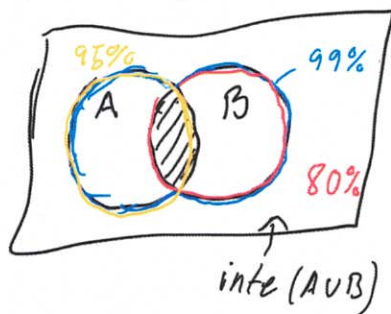 95% 99%
A B
80%
inte (A∪B)